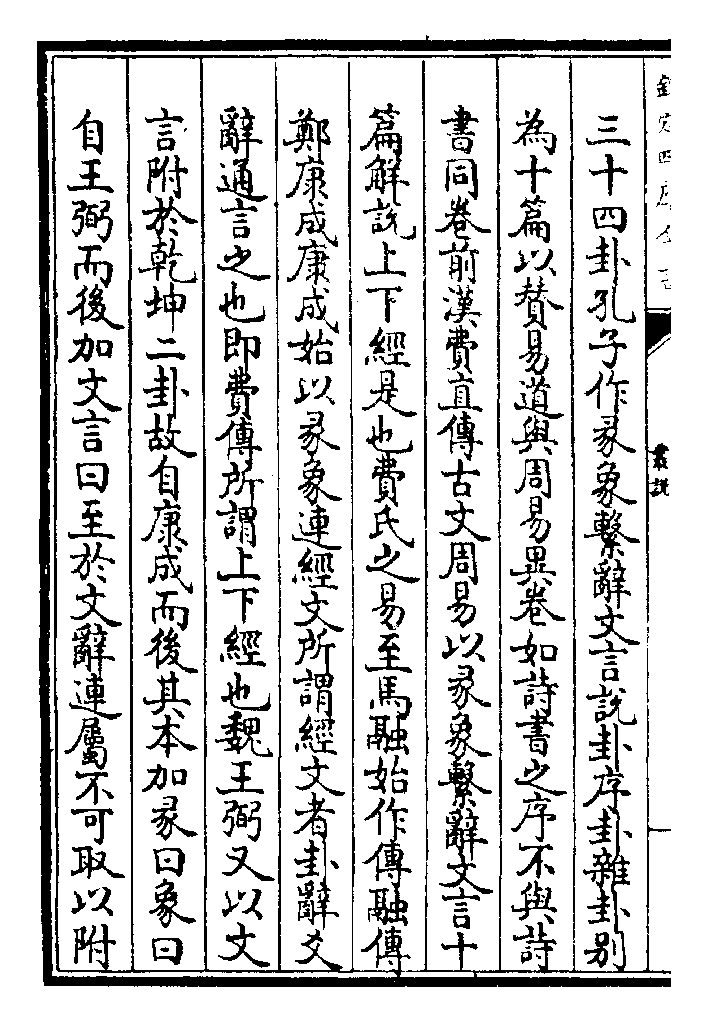 欽定四庫全書
叢說
三十四卦孔子作彖象繫辭文言說卦序卦雜卦别
為十篇以賛易道與周易異卷如詩書之序不與詩
書同卷前漢費直傳古文周易以彖象繫辭文言十
篇解說上下經是也費氏之易至馬融始作傳融傳
鄭康成康成始以彖象連經文所謂經文者卦辭爻
辭通言之也即費傳所謂上下經也魏王弼又以文
言附於乾坤二卦故自康成而後其本加彖曰象曰
自王弼而後加文言曰至於文辭連屬不可取以附